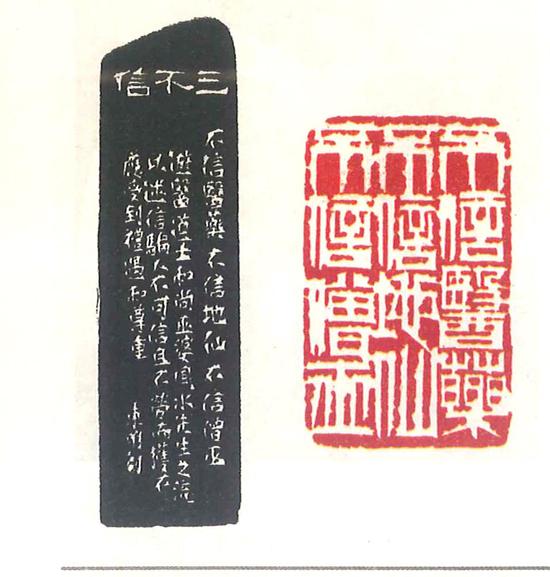 三不信
不信醫药不信地仙不信僧巫
遊醫道士和尚巫婆風水先生之流
以迷信騙人不可信且不勞而獲不
應受到禮遇和尊重
不信醫藥
不信地仙
不信僧巫